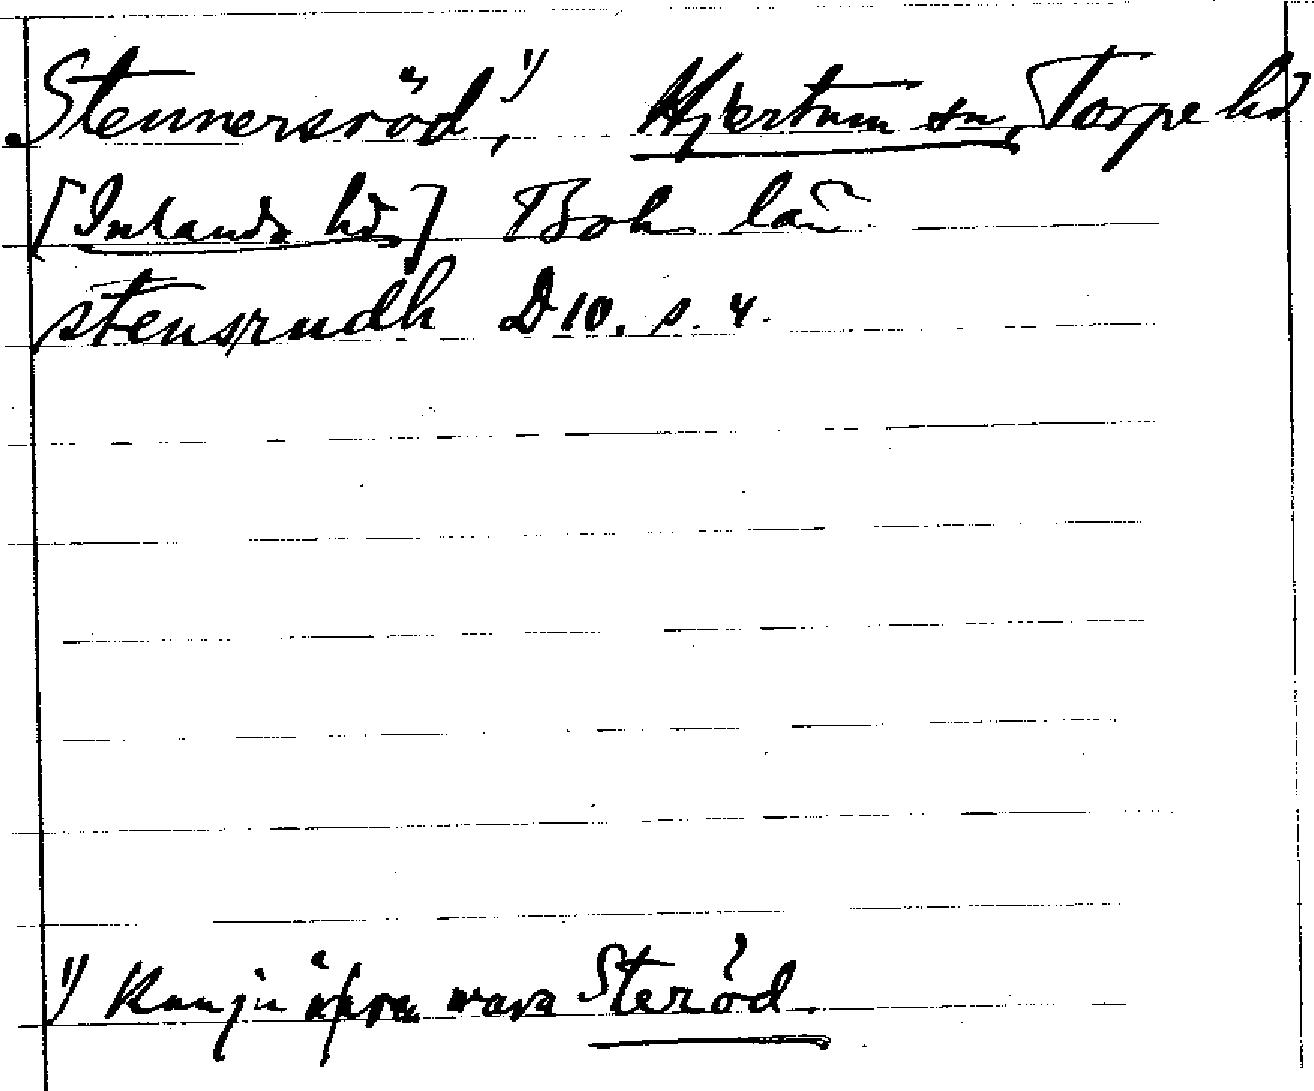 Stennersröd,¹⁾ Hjertum sn, Torpe hd
[Inlands hd] Boh län
stensrudh D 10. s. 4.
¹⁾ Kan ju även vara Steröd